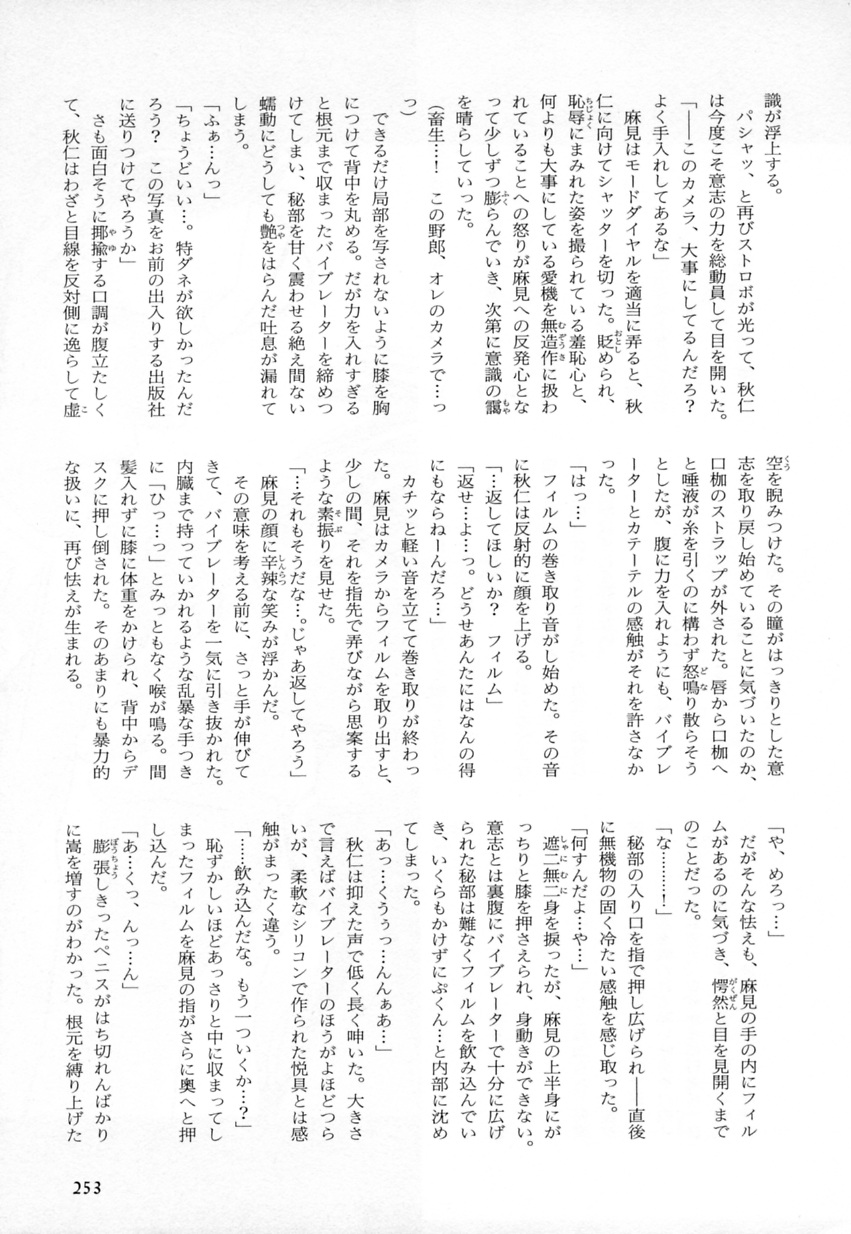 識が浮上する。
パシャッ、と再びストロボが光って、秋仁
は今度こそ意志の力を総動員して目を開いた。
「――このカメラ、大事にしてるんだろ?
よく手入れしてあるな」
麻見はモードダイヤルを適当に弄ると、秋
仁に向けてシャッターを切った。貶められ、
恥辱にまみれた姿を撮られている羞恥心と、
何よりも大事にしている愛機を無造作に扱わ
れていることへの怒りが麻見への反発心とな
って少しずつ膨らんでいき、次第に意識の靄
を晴らしていった。
(畜生…! この野郎、オレのカメラで…っ
っ)
できるだけ局部を写されないように膝を胸
につけて背中を丸める。だが力を入れすぎる
と根元まで収まったバイブレーターを締めつ
けてしまい、秘部を甘く震わせる絶え間ない
蠕動にどうしても艶をはらんだ吐息が漏れて
しまう。
「ふぁ…んっ」
「ちょうどいい…。特ダネが欲しかったんだ
ろう? この写真をお前の出入りする出版社
に送りつけてやろうか」
さも面白そうに揶揄する口調が腹立たしく
て、秋仁はわざと目線を反対側に逸らして虚
空を睨みつけた。その瞳がはっきりとした意
志を取り戻し始めていることに気づいたのか、
口枷のストラップが外された。唇から口枷へ
と唾液が糸を引くのに構わず怒鳴り散らそう
としたが、腹に力を入れようにも、バイブレ
ーターとカテーテルの感触がそれを許さなか
った。
「はっ…」
フィルムの巻き取り音がし始めた。その音
に秋仁は反射的に顔を上げる。
「…返してほしいか? フィルム」
「返せ…よ…っ。どうせあんたにはなんの得
にもならねーんだろ…」
カチッと軽い音を立てて巻き取りが終わっ
た。麻見はカメラからフィルムを取り出すと、
少しの間、それを指先で弄びながら思案する
ような素振りを見せた。
「…それもそうだな…。じゃあ返してやろう」
麻見の顔に辛辣な笑みが浮かんだ。
その意味を考える前に、さっと手が伸びて
きて、バイブレーターを一気に引き抜かれた。
内臓まで持っていかれるような乱暴な手つき
に「ひっ…っ」とみっともなく喉が鳴る。間
髪入れずに膝に体重をかけられ、背中からデ
スクに押し倒された。そのあまりにも暴力的
な扱いに、再び怯えが生まれる。
「や、めろっ…」
だがそんな怯えも、麻見の手の内にフィル
ムがあるのに気づき、愕然と目を見開くまで
のことだった。
「な………!」
秘部の入り口を指で押し広げられ――直後
に無機物の固く冷たい感触を感じ取った。
「何すんだよ…や…」
遮二無二身を捩ったが、麻見の上半身にが
っちりと膝を押さえられ、身動きができない。
意志とは裏腹にバイブレーターで十分に広げ
られた秘部は難なくフィルムを飲み込んでい
き、いくらもかけずにぷくん…と内部に沈め
てしまった。
「あっ…くうぅっ…んんぁあ…」
秋仁は抑えた声で低く長く呻いた。大きさ
で言えばバイブレーターのほうがよほどつら
いが、柔軟なシリコンで作られた悦具とは感
触がまったく違う。
「……飲み込んだな。もう一ついくか…?」
恥ずかしいほどあっさりと中に収まってし
まったフィルムを麻見の指がさらに奥へと押
し込んだ。
「あ…くっ、んっ…ん」
膨張しきったペニスがはち切れんばかり
に嵩を増すのがわかった。根元を縛り上げた
253